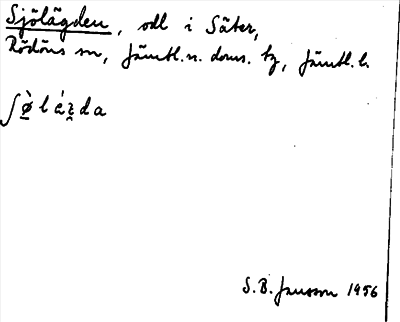 Sjölägden, odl i Säter,
Rödöns sn, Jämtl. n. doms. tg, Jämtl. l.
ʃø̀lág̯da
S.B. Jansson 1956